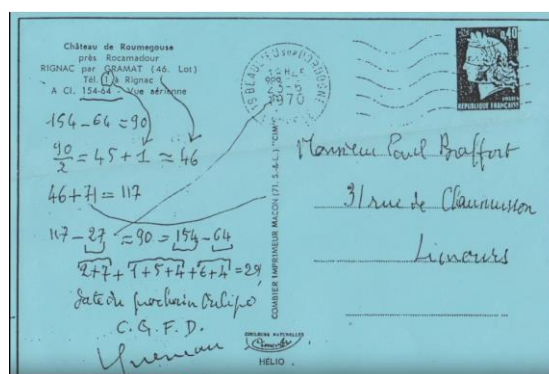 Château de Roumegouse
près Rocamadour
RIGNAC par GRAMAT (46. Lot)
Tél. 1 à Rignac
A Cl. 154-64 - Vue aérienne
154-64=90
90/2 = 45+1 = 46
46+71=117
117-27=90=154-64
2+7+1+5+4+6+4=29
date du prochain Oulipo
C.Q.F.D.
Queneau
BEAULIEU sur DORDOGNE
1970
COMBIER IMPRIMEUR MACON (71. S.-&-L.) "CIM"
0,40
REPUBLIQUE FRANÇAISE
Monsieur Paul Braffort
31 rue de Chaumusson
Limours
HÉLIO